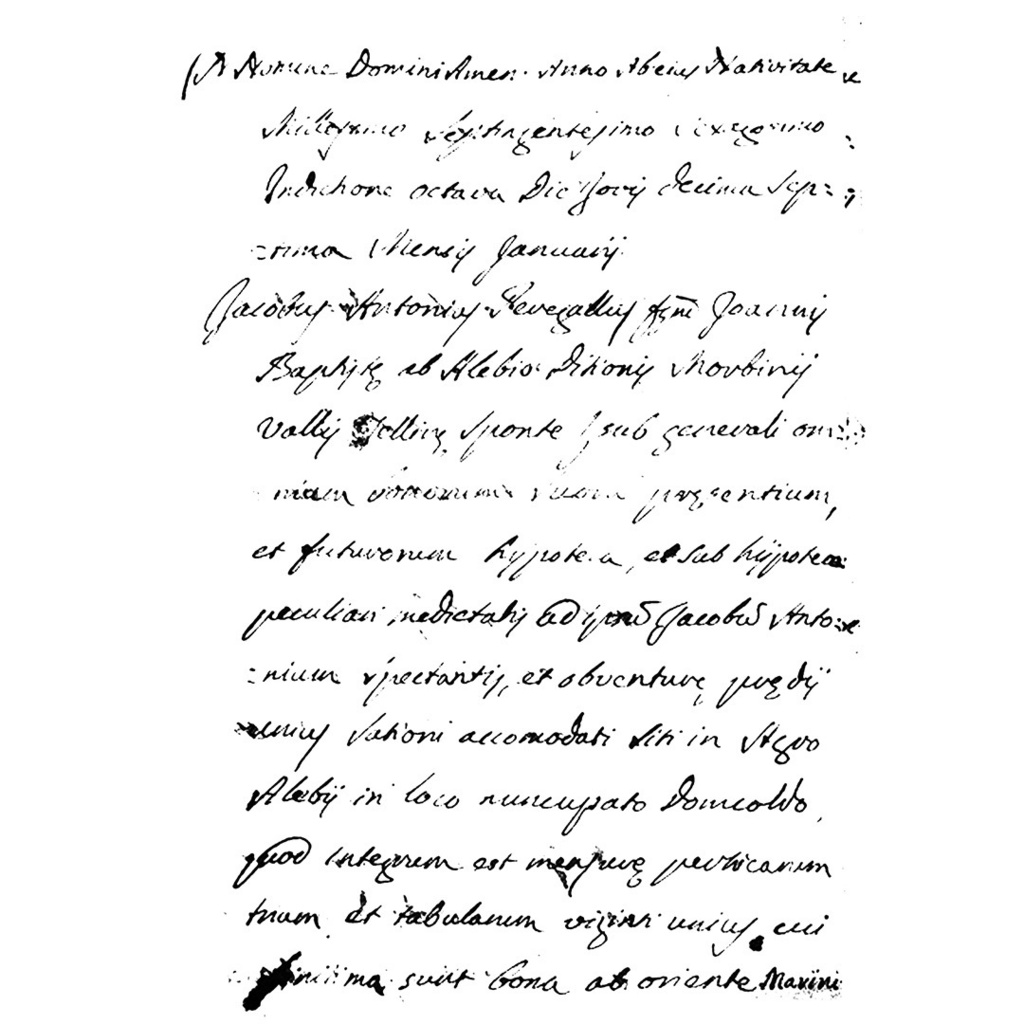 In Nomine Domini Amen. Anno Abeius Nativitate
Millesimo Septingentesimo Sexagesimo
Indictione octava Die Jovis decima Sep=
=tima Mensis Januarij
Jacobus Antonius Joannis
Baptistę ab Alebio Ditionis Morbinij
Vallis Tellinę sponte sub generali om=
niam bonorum suorum pręsentium,
et futurorum hÿpoteca, et sub hÿpoteca
peculiari medietatis ad ipsũ Jacobũ Anto=
=nium spectantis, et obventurę prędÿ
unius sationi accomodati siti in Agro
Alebÿ in loco nuncupato Domcoldo,
quod integrum est mensurę perticarum
trium et tabularum viginti unius, cui
sunt bona ab oriente Marini